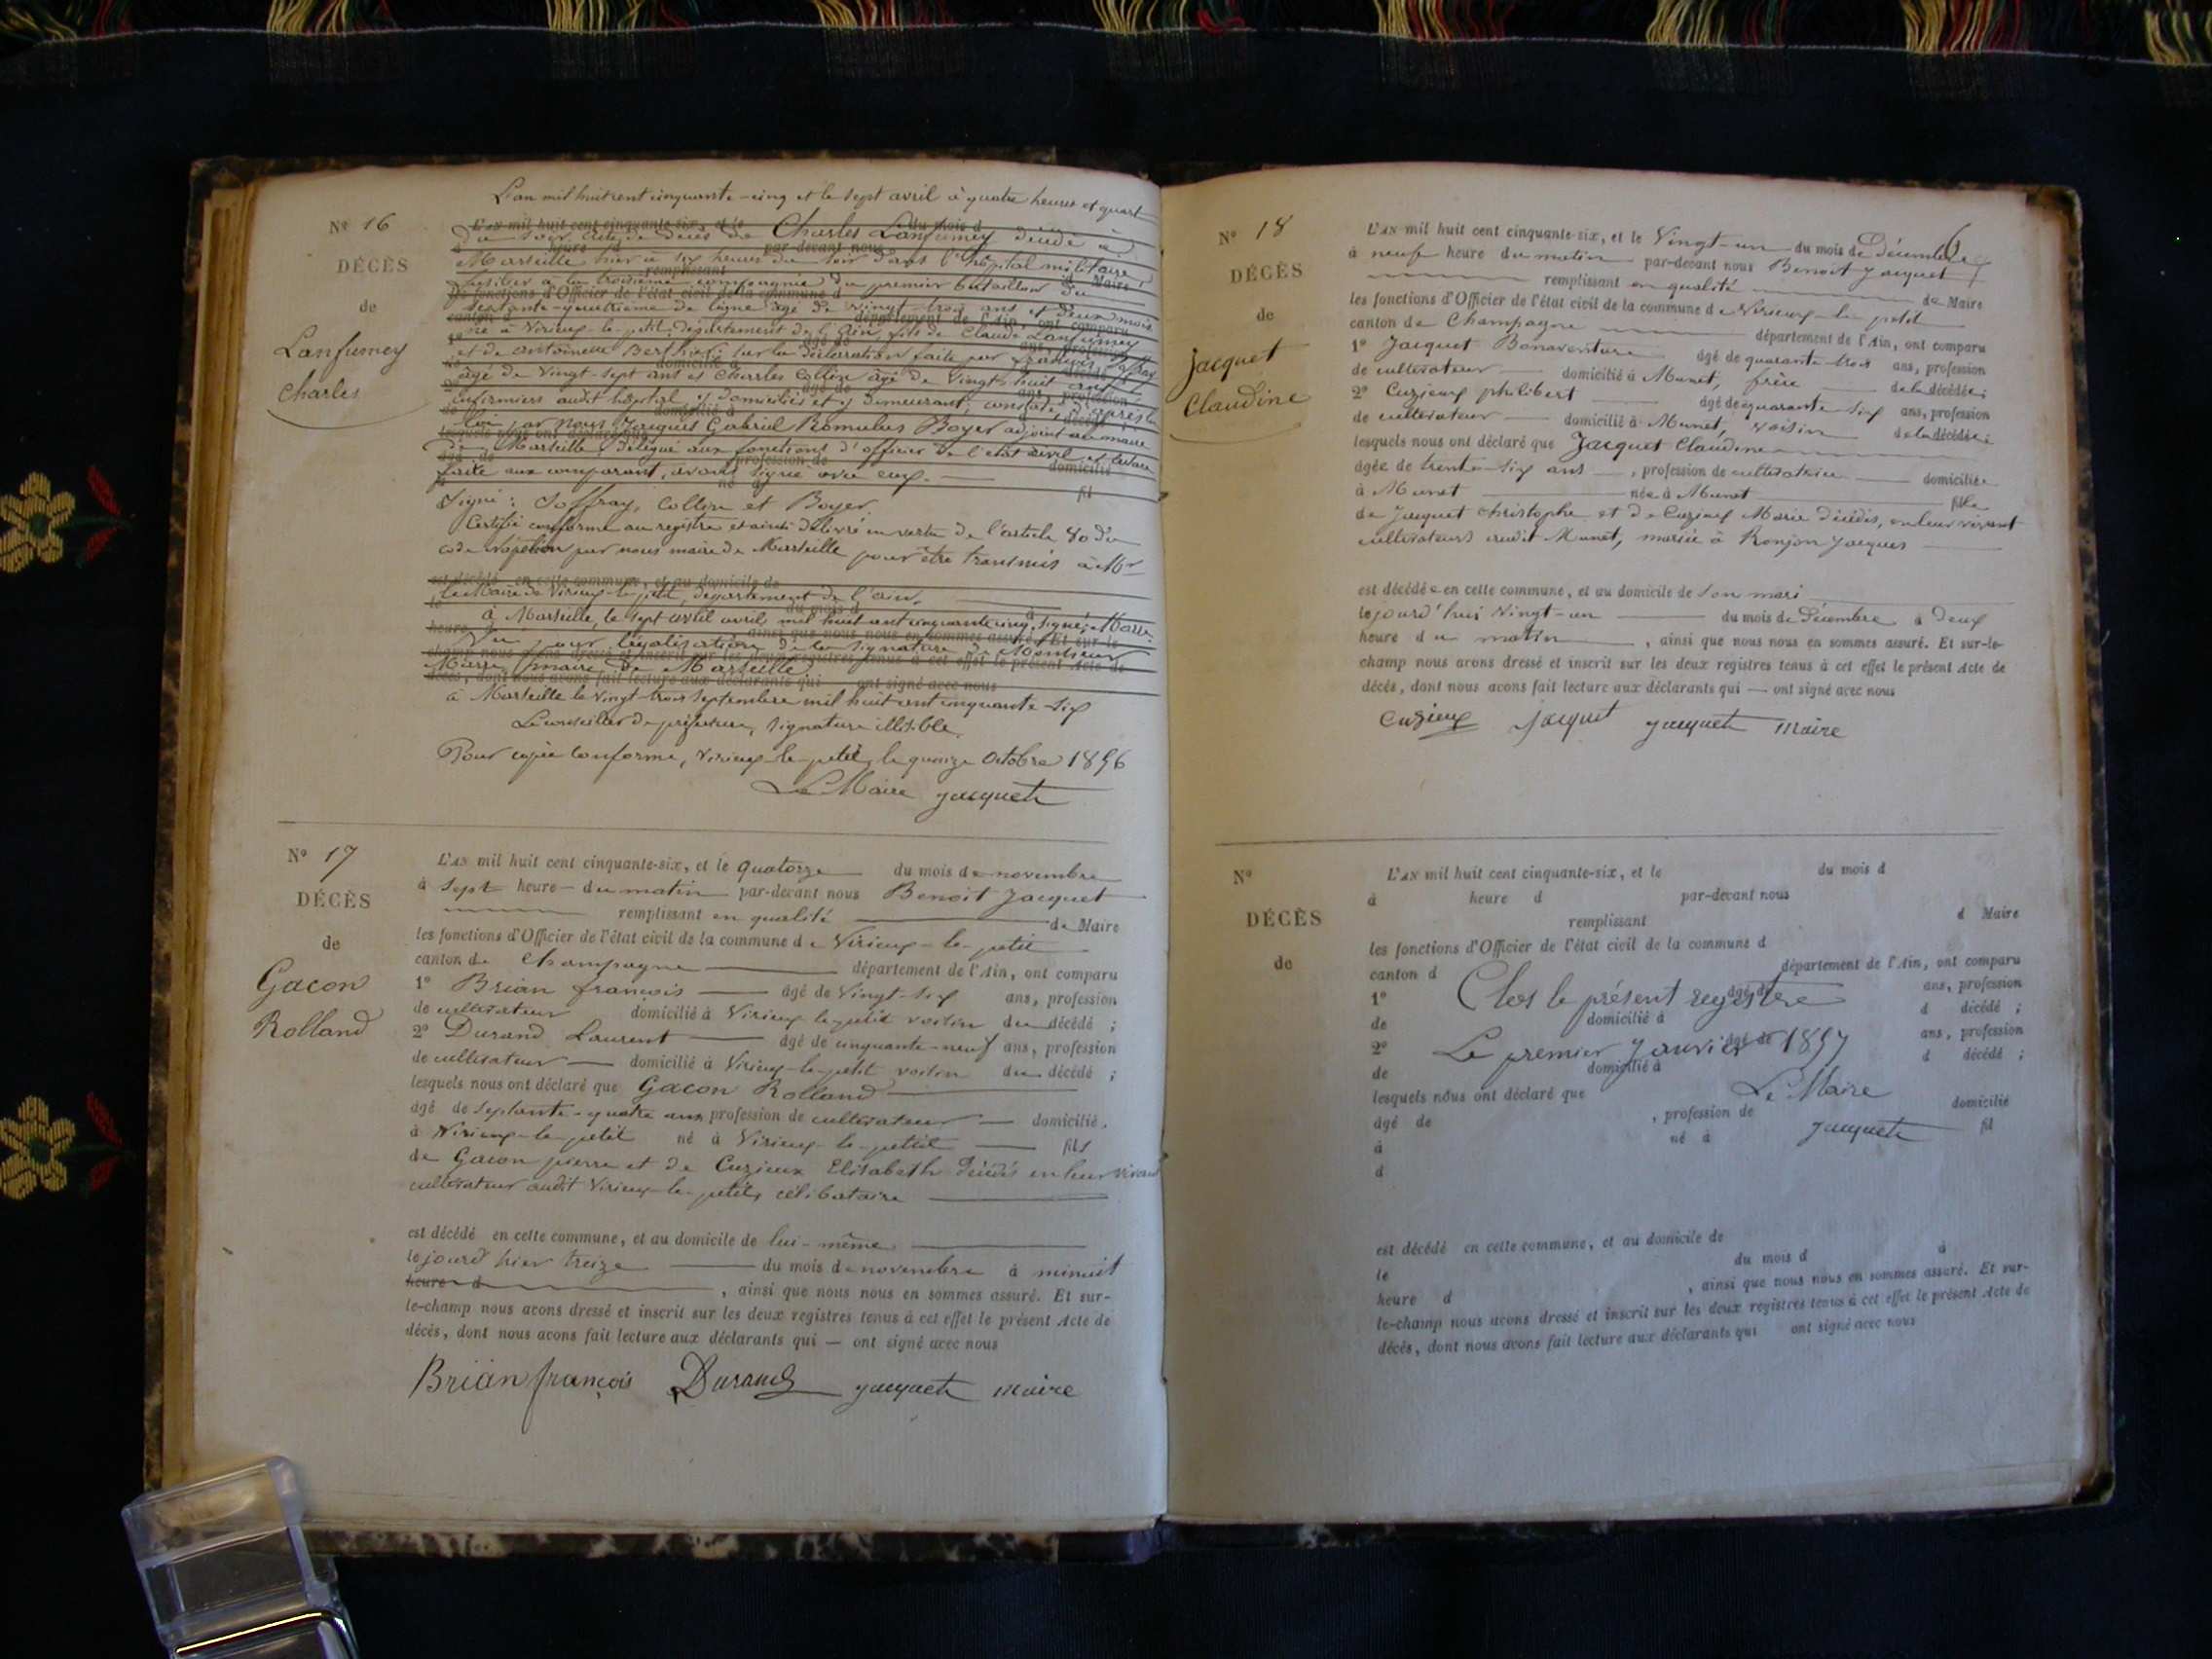 L'an mil huit cent cinquante-cinq et le sept avril à quatre heures et quart
Nº 16
DÉCÈS
de
Lanfumey
Charles
L'AN mil huit cent cinquante-six, et le du mois d
du soir acte de décès de Charles Lanfumey décédé à
heure d par-devant nous
Marseille hier à six heures du soir dans l'hôpital militaire,
remplissant d Maire
fusilier à la troisième compagnie du premier bataillon du
les fonctions d'Officier de l'état civil de la commune d
septante-quatrième de ligne âgé de vingt-trois ans et deux mois
canton d département de l'Ain, ont comparu
né à Virieux-le-petit, département de l'ain, fils de Claude Lanfumey
et de antoinette Berthet; sur la déclaration faite par françois Joffray
domicilié à
âgé de vingt-sept ans et Charles Collin âgé de vingt-huit ans
infirmiers audit hôpital, y domiciliés et y demeurant; constaté d'après la
domicilié à
loi, par nous Jacques Gabriel Romulus Boyer adjoint au maire
lesquels nous ont déclaré que
de Marseille, délégué aux fonctions d'officier de l'état civil et lecture
âgé de profession de domicilié
faite aux comparant, avons signé avec eux.
né à fil
Signé: Joffray, Collin et Boyer.
Certifié conforme au registre et ainsi délivré en vertu de l'article 80 du
code Napoléon par nous maire de Marseille pour être transmis à Mr
est décédé en cette commune, et au domicile de
le Maire de Virieux-le-petit, département de l'ain.
le du mois d à
à Marseille, le sept avril mil huit cent cinquante cinq, signé;
heure d ainsi que nous nous en sommes assuré. Et sur-le-
Vu pour légalisation de la signature de Monsieur
champ nous avons dressé et inscrit sur les deux registres tenus à cet effet le présent Acte de
maire de Marseille
décès, dont nous avons fait lecture aux déclarants qui ont signé avec nous
à Marseille le vingt-trois septembre mil huit cent cinquante-six
Le conseiller de préfecture, signature illisible.
Pour copie conforme, Virieux-le-petit, le quinze Octobre 1856
Le Maire Jacquet
Nº 17
DÉCÈS
de
Gacon
Rolland
L'AN mil huit cent cinquante-six, et le quatorze du mois de novembre
à sept heure du matin par-devant nous Benoit Jacquet
remplissant en qualité de Maire
les fonctions d'Officier de l'état civil de la commune de Virieux-le-petit
canton de Champagne département de l'Ain, ont comparu
1º Brian françois âgé de vingt-six ans, profession
de cultivateur domicilié à Virieux-le-petit voisin du décédé ;
2º Durand Laurent âgé de cinquante-neuf ans, profession
de cultivateur domicilié à Virieux-le-petit voisin du décédé ;
lesquels nous ont déclaré que Gacon Rolland
âgé de septante-quatre ans, profession de cultivateur domicilié
à Virieux-le-petit né à Virieux-le-petit fils
de Gacon pierre et de Cuzieux Elisabeth décédés en leur vivant
cultivateur audit Virieux-le-petit, célibataire
est décédé en cette commune, et au domicile de lui-même
le jourd'hier treize du mois de novembre à minuit
heure d , ainsi que nous nous en sommes assuré. Et sur-
le-champ nous avons dressé et inscrit sur les deux registres tenus à cet effet le présent Acte de
décès, dont nous avons fait lecture aux déclarants qui — ont signé avec nous
Brian françois Durand Jacquet maire
Nº 18
DÉCÈS
de
Jacquet
Claudine
L'AN mil huit cent cinquante-six, et le vingt-un du mois de Décembre
à neuf heure du matin par-devant nous Benoit Jacquet
remplissant en qualité de Maire
les fonctions d'Officier de l'état civil de la commune de Virieux-le-petit
canton de Champagne département de l'Ain, ont comparu
1º Jacquet Bonaventure âgé de quarante-trois ans, profession
de cultivateur domicilié à Munet, frère de la décédée ;
2º Cuzieux philibert âgé de quarante-six ans, profession
de cultivateur domicilié à Munet, voisin de la décédée ;
lesquels nous ont déclaré que Jacquet Claudine
âgée de trente-six ans , profession de cultivatrice domiciliée
à Munet née à Munet fille
de Jacquet christophe et de Cuzieux Marie décédés, en leur vivant
cultivateurs audit Munet, mariée à Ronjon Jacques
est décédée en cette commune, et au domicile de son mari
le jourd'hui vingt-un du mois de Décembre à deux
heure du matin , ainsi que nous nous en sommes assuré. Et sur-le-
champ nous avons dressé et inscrit sur les deux registres tenus à cet effet le présent Acte de
décès, dont nous avons fait lecture aux déclarants qui — ont signé avec nous
Cuzieux Jacquet Jacquet maire
Nº
DÉCÈS
de
L'AN mil huit cent cinquante-six, et le du mois d
à heure d par-devant nous
remplissant d Maire
les fonctions d'Officier de l'état civil de la commune d
canton d département de l'Ain, ont comparu
Clos le présent registre
1º âgé de ans, profession
de domicilié à d décédé ;
Le premier Janvier 1857
2º âgé de ans, profession
de domicilié à d décédé ;
lesquels nous ont déclaré que Le Maire
âgé de , profession de domicilié
à né à Jacquet fil
d
est décédé en cette commune, et au domicile de
le du mois d à
heure d , ainsi que nous nous en sommes assuré. Et sur-
le-champ nous avons dressé et inscrit sur les deux registres tenus à cet effet le présent Acte de
décès, dont nous avons fait lecture aux déclarants qui ont signé avec nous